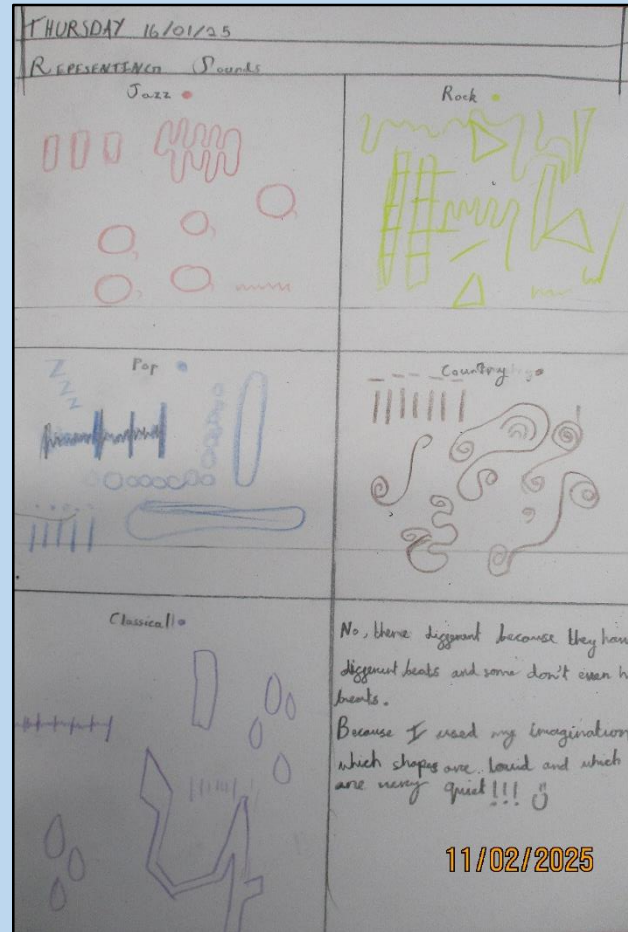 THURSDAY 16/01/25
REPESENTING Sounds
Jazz
Rock
Pop
ZZZ
Country
Classical
No, there different because they have
different beats and some don't even h
beats.
Because I used my imagination
which shapes are loud and which
are very quiet!!!
11/02/2025